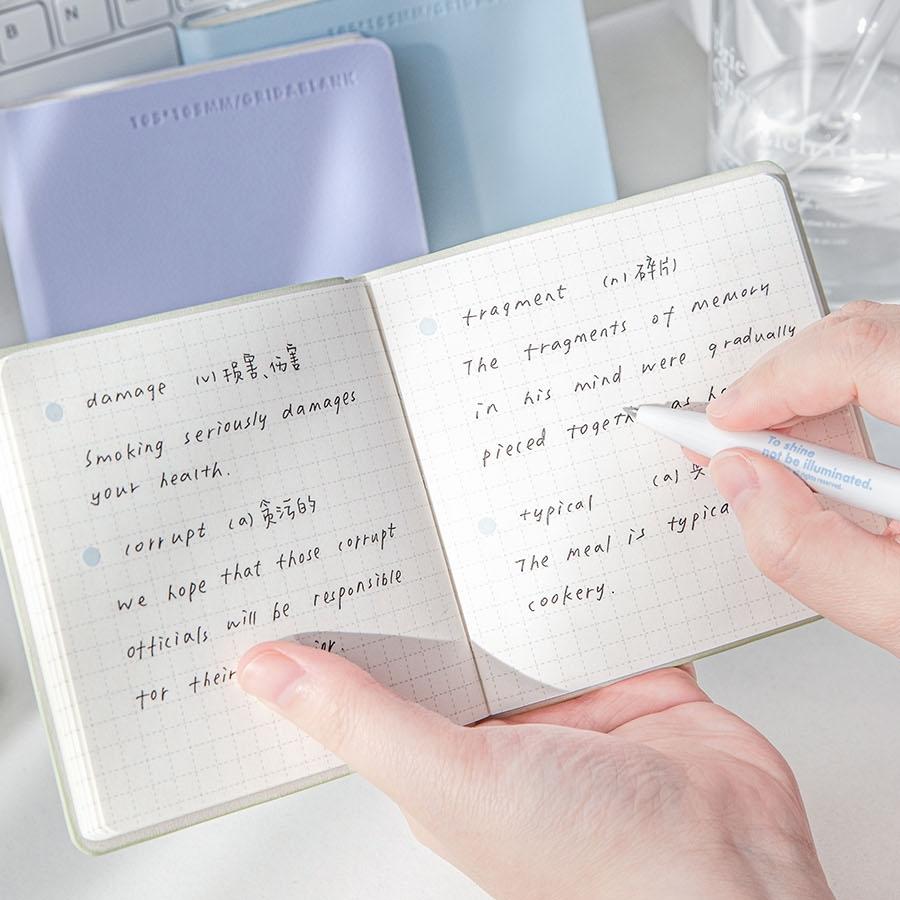 B N
105*105MM/GRID&BLANK
damage (v) 损害、伤害
Smoking seriously damages
your health.
corrupt (a) 贪污的
We hope that those corrupt
officials will be responsible
for their
fragment (n) 碎片
The fragments of memory
in his mind were gradually
pieced as
typical (a)
The meal is
cookery.
To shine
not be illuminated.
all rights reserved.